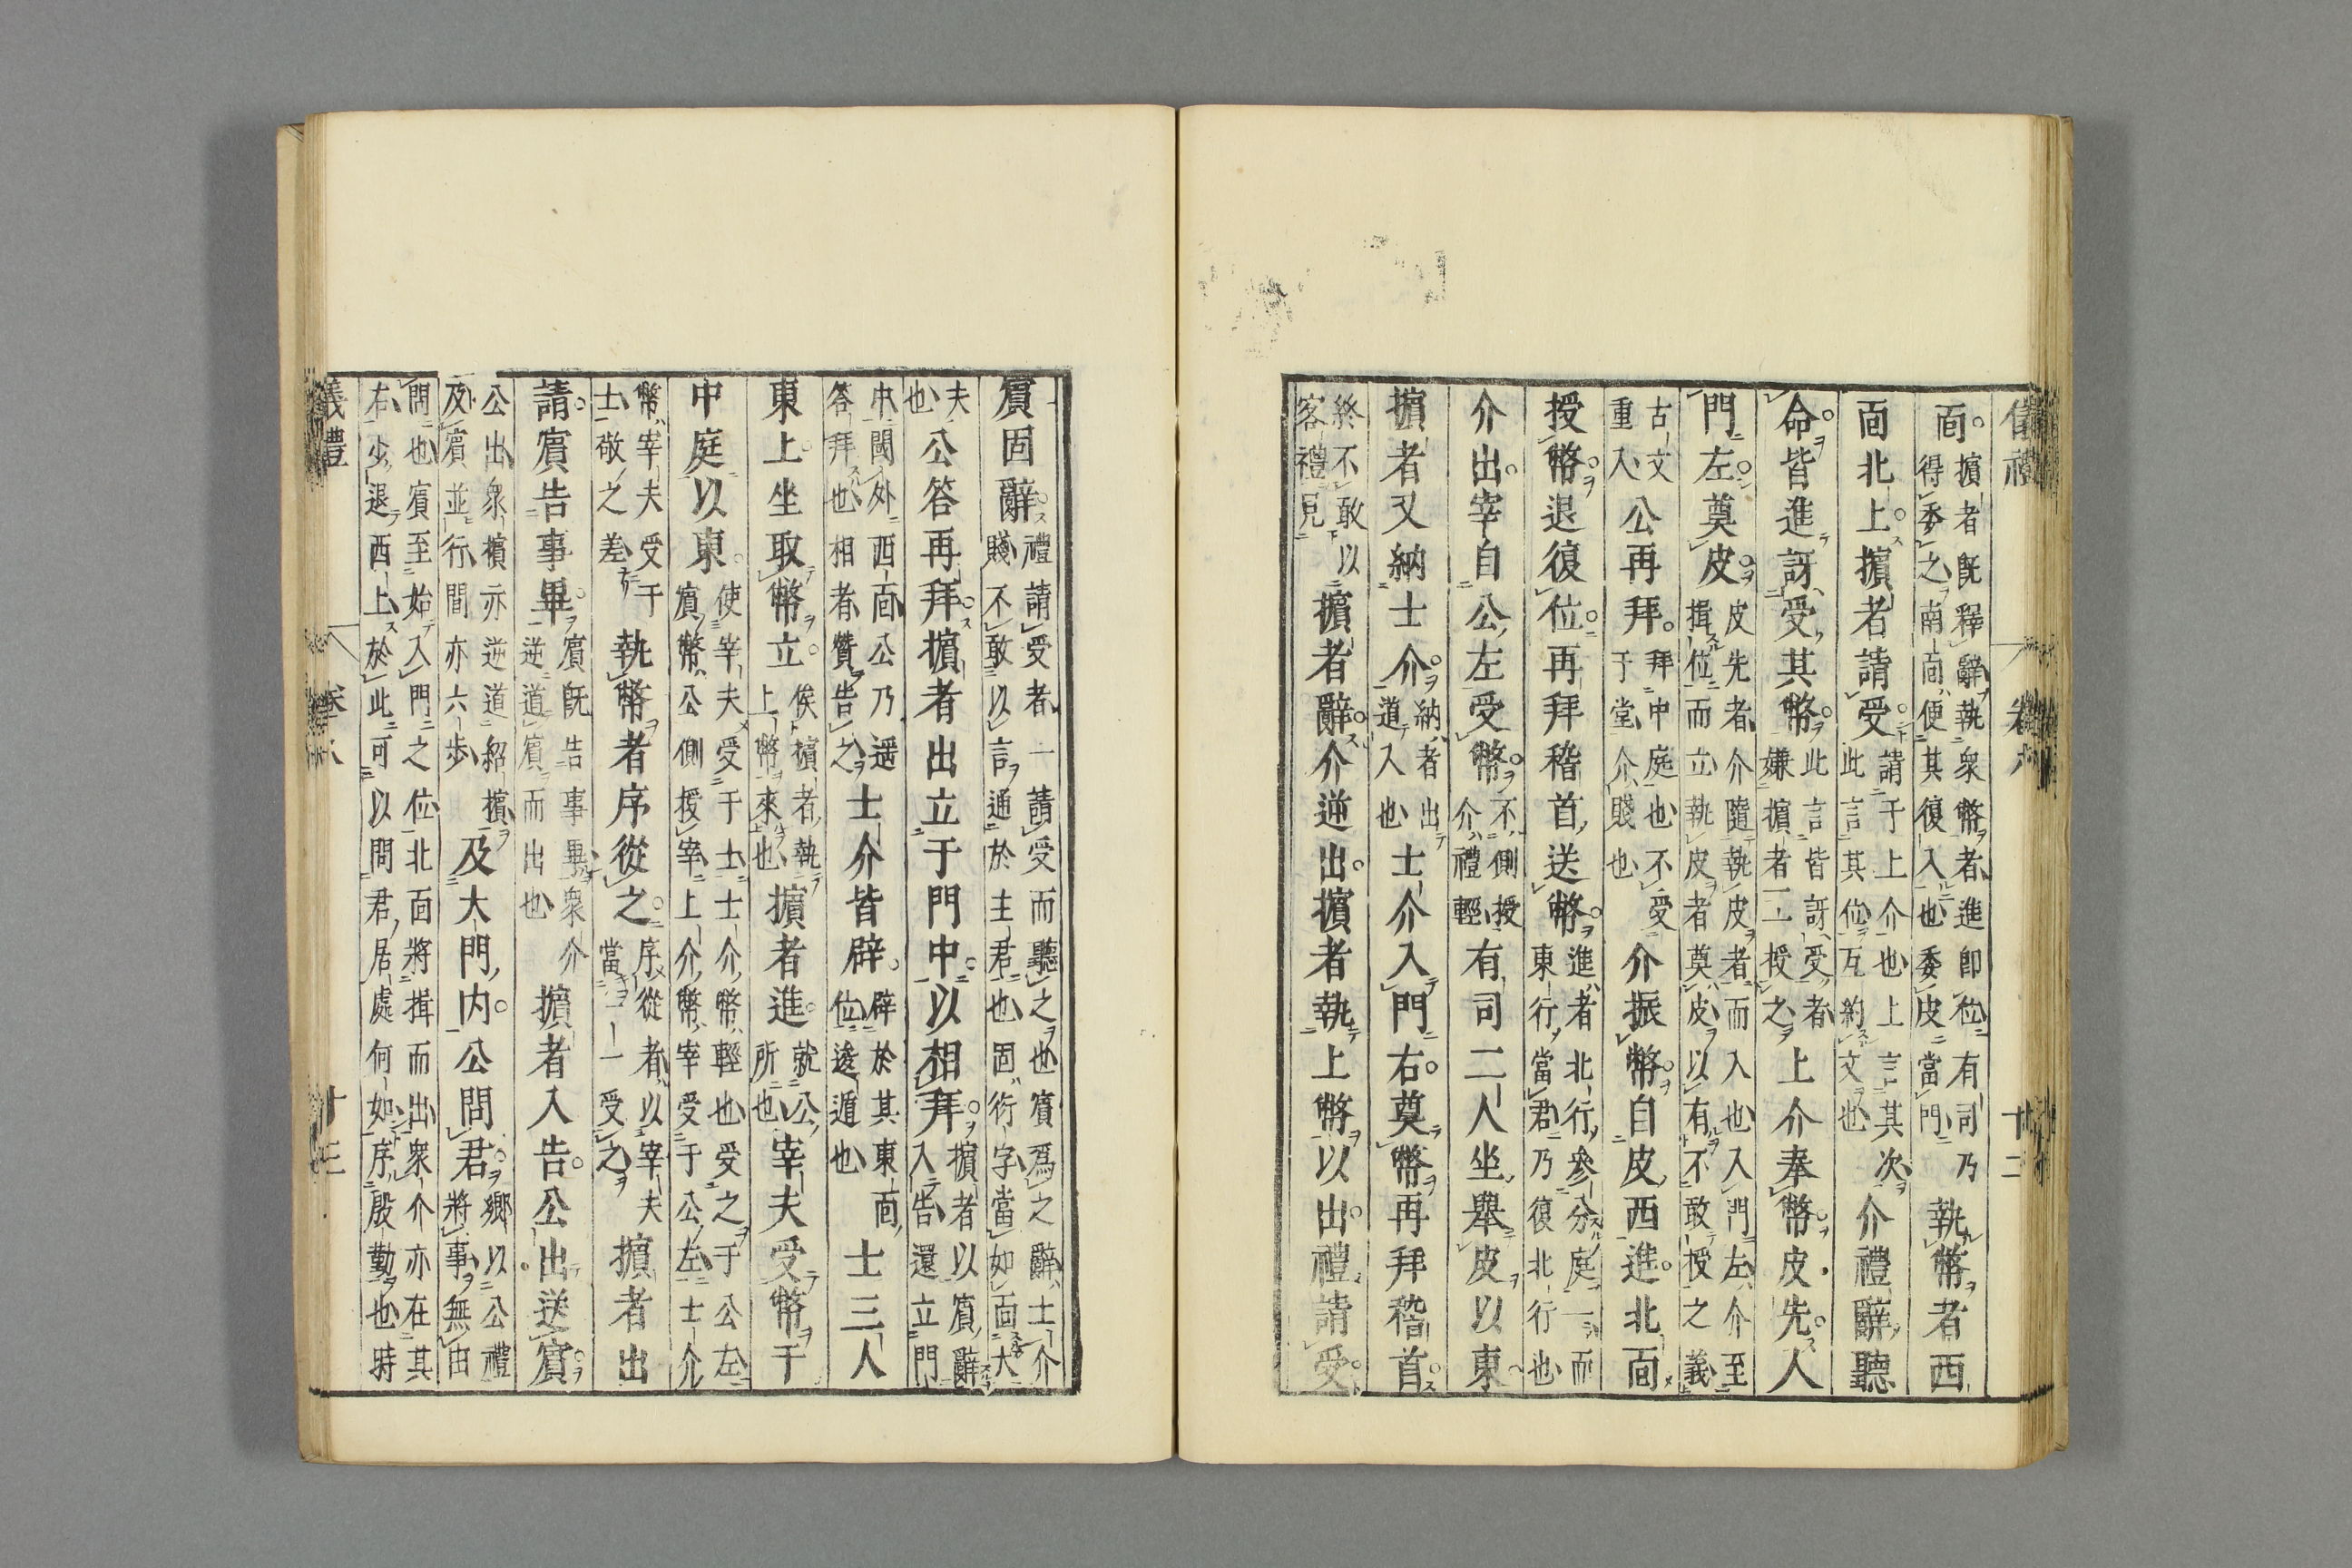 儀禮 卷八 十二
面擯者既釋辭執衆幣者進即位有司乃得委之南面便其復入也委皮當門執幣者西
面北上擯者請受請于上介也上言其次此言其位互約文也介禮辭聽
命皆進訝受其幣此言皆訝受者嫌擯者一一授之上介奉幣皮先入
門左奠皮皮先者介隨執皮者而入也入門左介至揖位而立執皮者奠皮以有不敢授之義
古文重入公再拜拜中庭也不受于堂介賤也介振幣自皮西進北面
授幣退復位再拜稽首送幣進者北行參分庭一而東行當君乃復北行也
介出宰自公左受幣不側授介禮輕有司二人坐舉皮以東
擯者又納士介納者出道入也士介入門右奠幣再拜稽首
終不敢以客禮見擯者辭介逆出擯者執上幣以出禮請受
賓固辭禮請受者一請受而聽之也賓爲之辭士介賤不敢以言通於主君也固衍字當如面大
夫也公答再拜擯者出立于門中以相拜擯者以賓辭入告還立門
中閾外西面公乃遥答拜也相者贊告之士介皆辟辟於其東面位逡遁也士三人
東上坐取幣立俟擯者執上幣來也擯者進就公所也宰夫受幣于
中庭以東使宰夫受于士士介幣輕也受之于公左賓幣公側授宰上介幣宰受于公左士介
幣宰夫受于士敬之差執幣者序從之序從者以宰夫當一一受之擯者出
請賓告事畢賓既告事畢衆介逆道賓而出也擯者入告公出送賓
公出衆擯亦逆道紹擯及賓並行間亦六步及大門内公問君鄉以公禮將事無由
問也賓至始入門之位北面將揖而出衆介亦在其右少退西上於此可以問君居處何如序殷勤也時
儀禮 卷八 十三